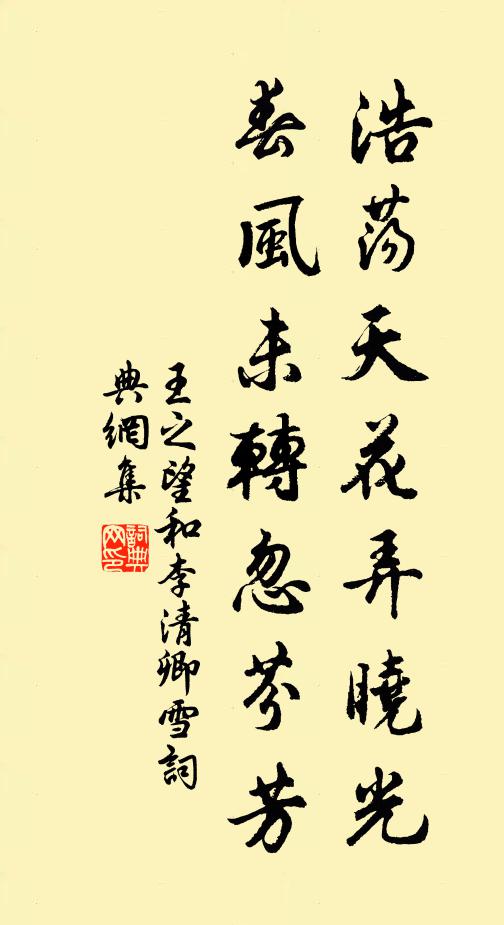 浩蕩天花弄曉光
春風未轉忽芬芳
王之望和李清卿雪詞
典網集
詞典
网印